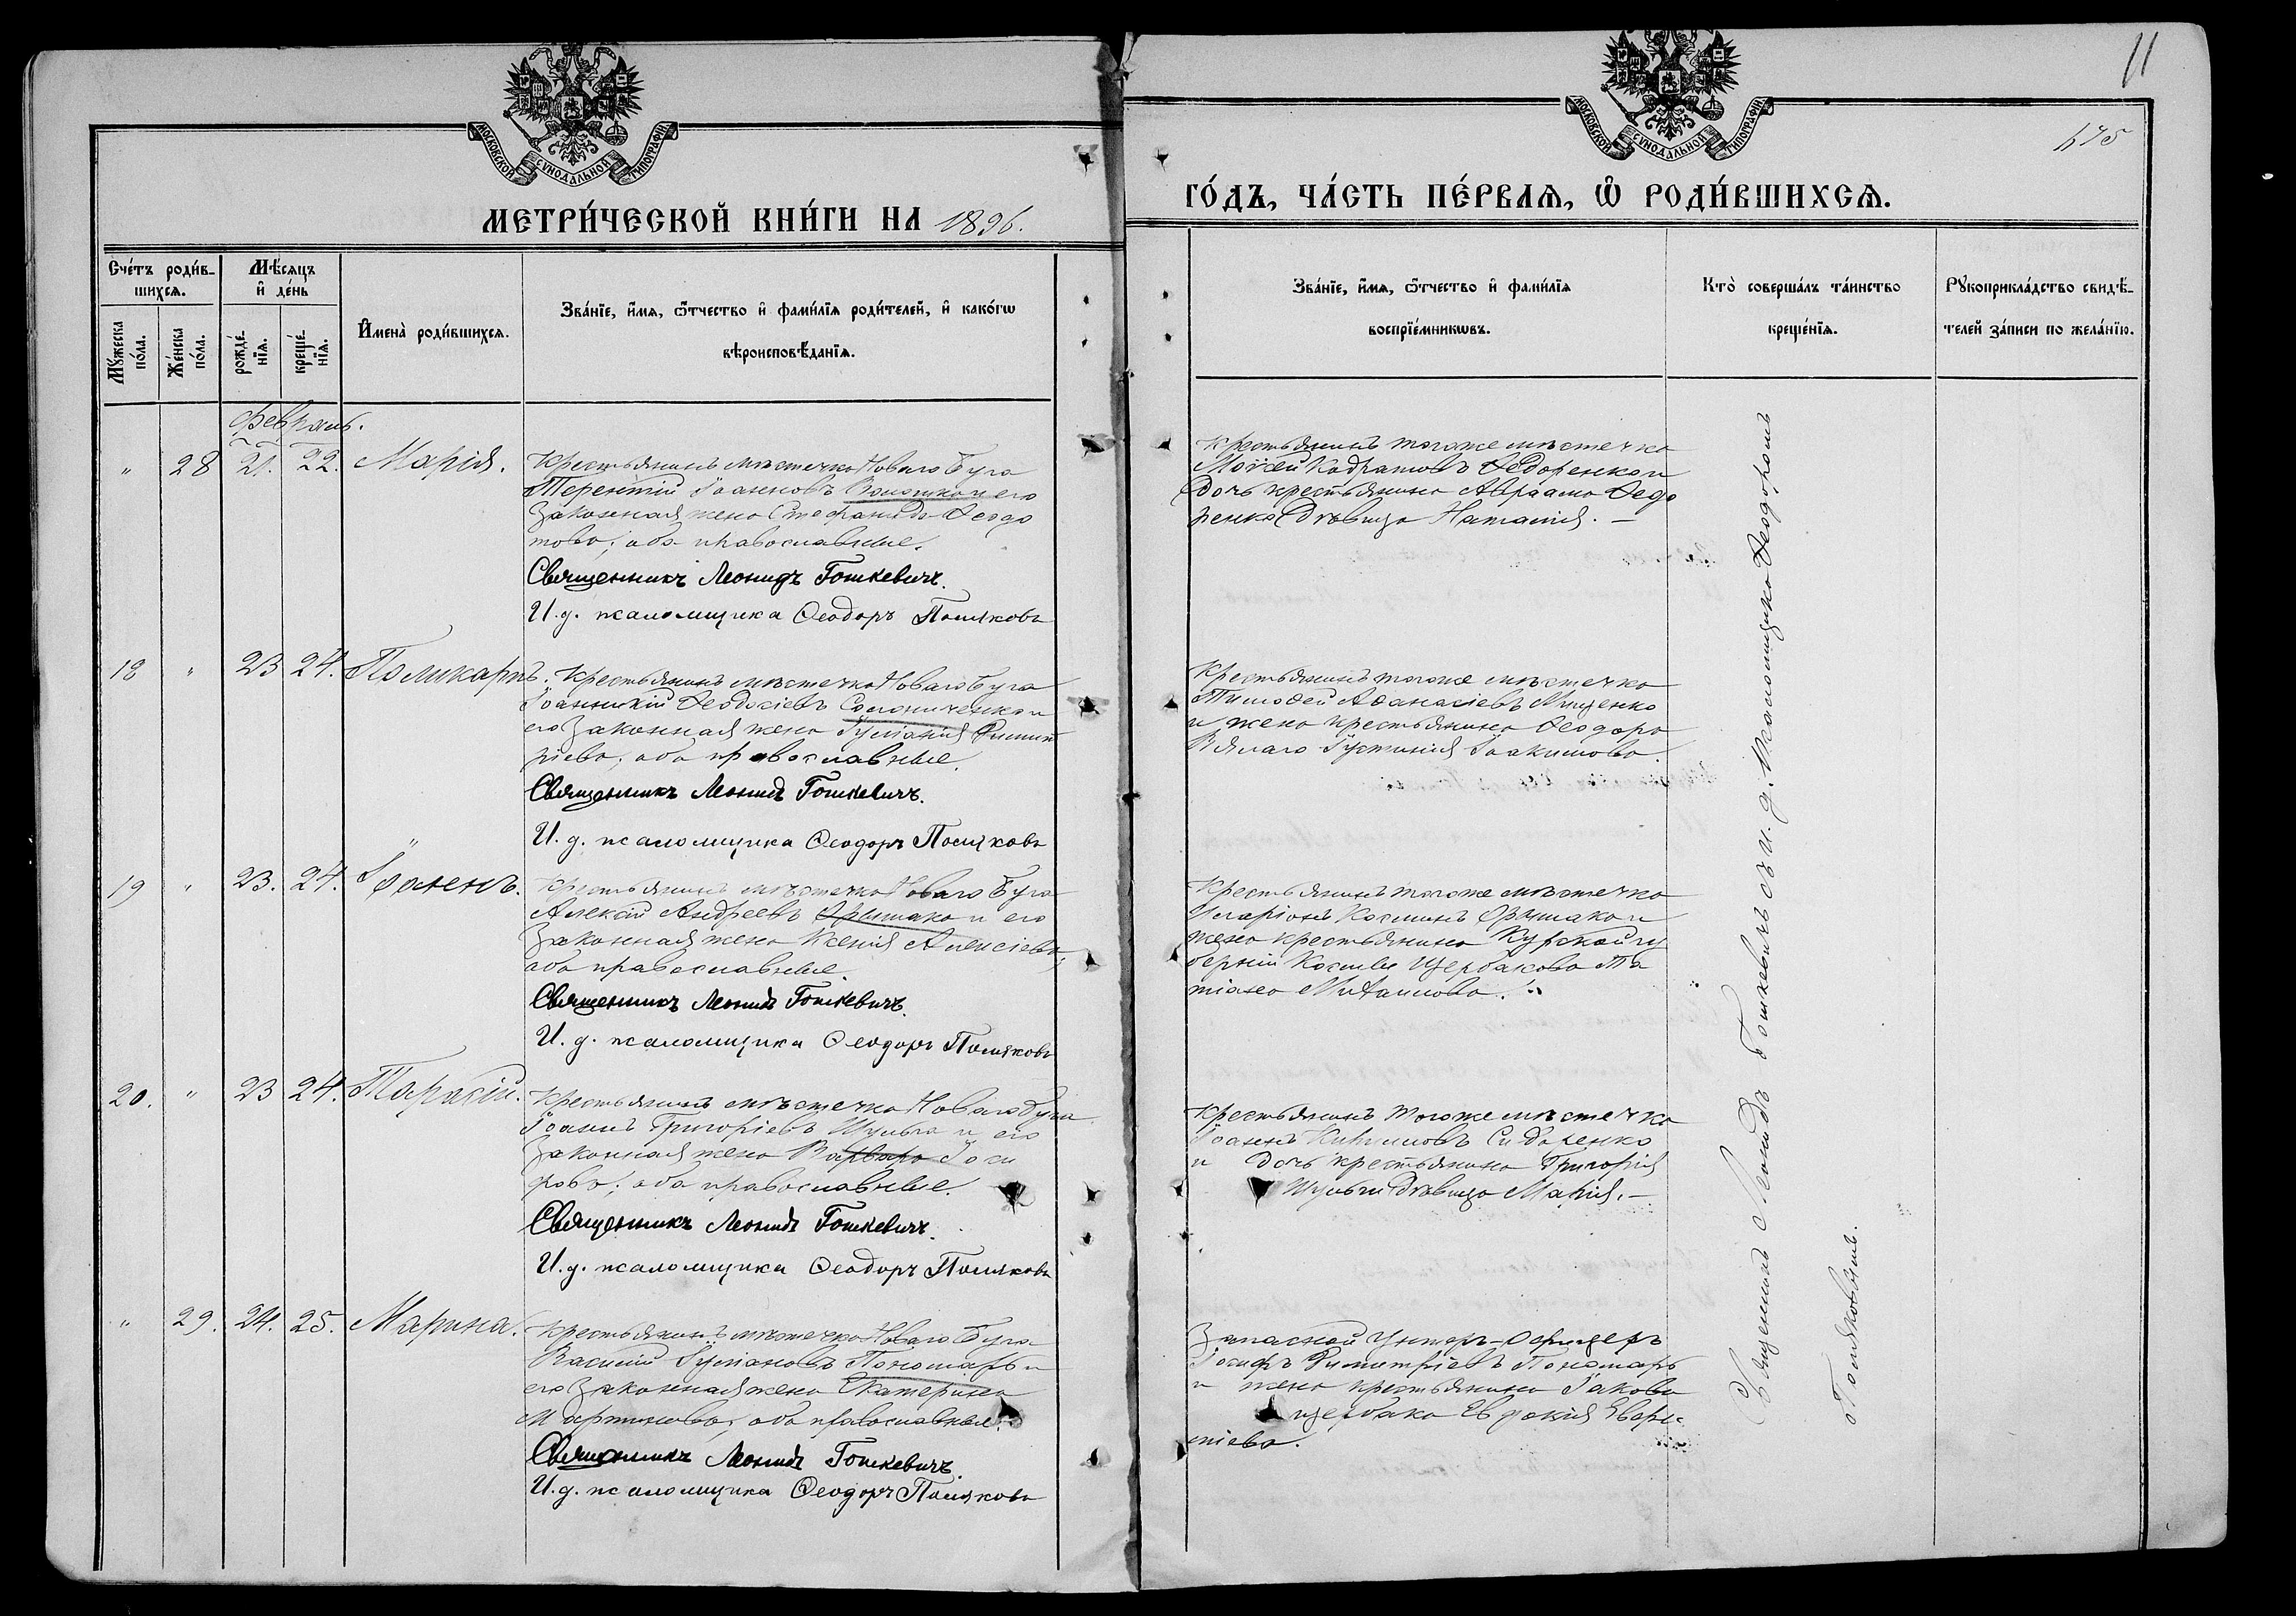 11
475
МОСКОВСКОЙ СУНОДАЛЬНОЙ ТИПОГРАФІИ
МОСКОВСКОЙ СУНОДАЛЬНОЙ ТИПОГРАФІИ
МЕТРИ́ЧЕСКОЙ КНИ́ГИ НА 1896.
ГО́ДЪ, ЧА́СТЬ ПЕ́РВАѦ, Ѽ РОДИ́ВШИХСѦ.
Сче́тъ роди́в-
шихсѧ.
Мꙋ́жеска по́ла.
Же́нска по́ла.
Мѣ́сѧцъ
и҆ де́нь
рожде́-
нїѧ.
креще́-
нїѧ.
И҆мена̀ роди́вшихсѧ.
Зва́нїе, и҆́мѧ, ѻ҆́тчество и҆ фами́лїѧ роди́телей, и҆ како́гѡ
вѣроисповѣ́данїѧ.
Зва́нїе, и҆́мѧ, ѻ҆́тчество и҆ фами́лїѧ
воспрїе́мникѡвъ.
Кто̀ соверша́лъ та́инство
креще́нїѧ.
Рꙋкоприкла́дство свидѣ́-
телей за́писи по жела́нїю.
Февраль.
" 28 21. 22. Марія.
Крестьянинъ мѣстечка Новаго Буга
Терентій Іоанновъ и его
Законная жена Стефанида Ѳеодо
това; оба православные.
Священникъ Леонидъ Гошкевичъ.
И. д. псаломщика Ѳеодоръ Поляковъ
Крестьянинъ тогоже мѣстечка
Моѵсей Кодратовъ Ѳедоренко и
дочь крестьянина Авраама Ѳедо
ренка дѣвица Наталія. —
18 " 23 24. Поликарпъ.
Крестьянинъ мѣстечка Новаго Буга
Іоанникій Ѳеодосіевъ и
его Законная жена Іуліанія Димит
ріева; оба православные.
Священникъ Леонидъ Гошкевичъ.
И. д. псаломщика Ѳеодоръ Поляковъ
Крестьянинъ тогоже мѣстечка
Тимоѳей Аѳанасіевъ Мищенко
и жена крестьянина Ѳеодора
Вялаго Іустинія Іоакимова.
19 " 23. 24. Іоаннъ.
Крестьянинъ мѣстечка Новаго Буга
Алексій Андреевъ и его
Законная жена Ксенія Алексіева,
оба православные.
Священникъ Леонидъ Гошкевичъ.
И. д. псаломщика Ѳеодоръ Поляковъ
Крестьянинъ тогоже мѣстечка
Иларіонъ Косминъ и
жена крестьянина Курской гу
берніи Космы Щербакова Та
тіана
20. " 23 24. Тарасій.
Крестьянинъ мѣстечка Новаго Буга
Іоаннъ Григоріевъ Шульга и его
Законная жена Варвара Іоси
фова; оба православные.
Священникъ Леонидъ Гошкевичъ.
И. д. псаломщика Ѳеодоръ Поляковъ
Крестьянинъ тогоже мѣстечка
Іоаннъ Кирилловъ Сидоренко
и дочь крестьянина Григорія
Шульги дѣвица Марія. —
" 29. 24. 25. Марина.
Крестьянинъ мѣстечка Новаго Буга
Василій Іуліановъ Пономарь и
его Законная жена Екатерина
Мартинова, оба православные.
Священникъ Леонидъ Гошкевичъ.
И. д. псаломщика Ѳеодоръ Поляковъ
Запасной Унтеръ-Офицеръ
Іосифъ Димитріевъ Пономарь
и жена крестьянина Іакова
Щербака Евдокія Евари
стіева.
Священникъ Леонидъ Гошкевичъ съ и. д. Псаломщика Ѳеодоромъ
Поляковымъ.